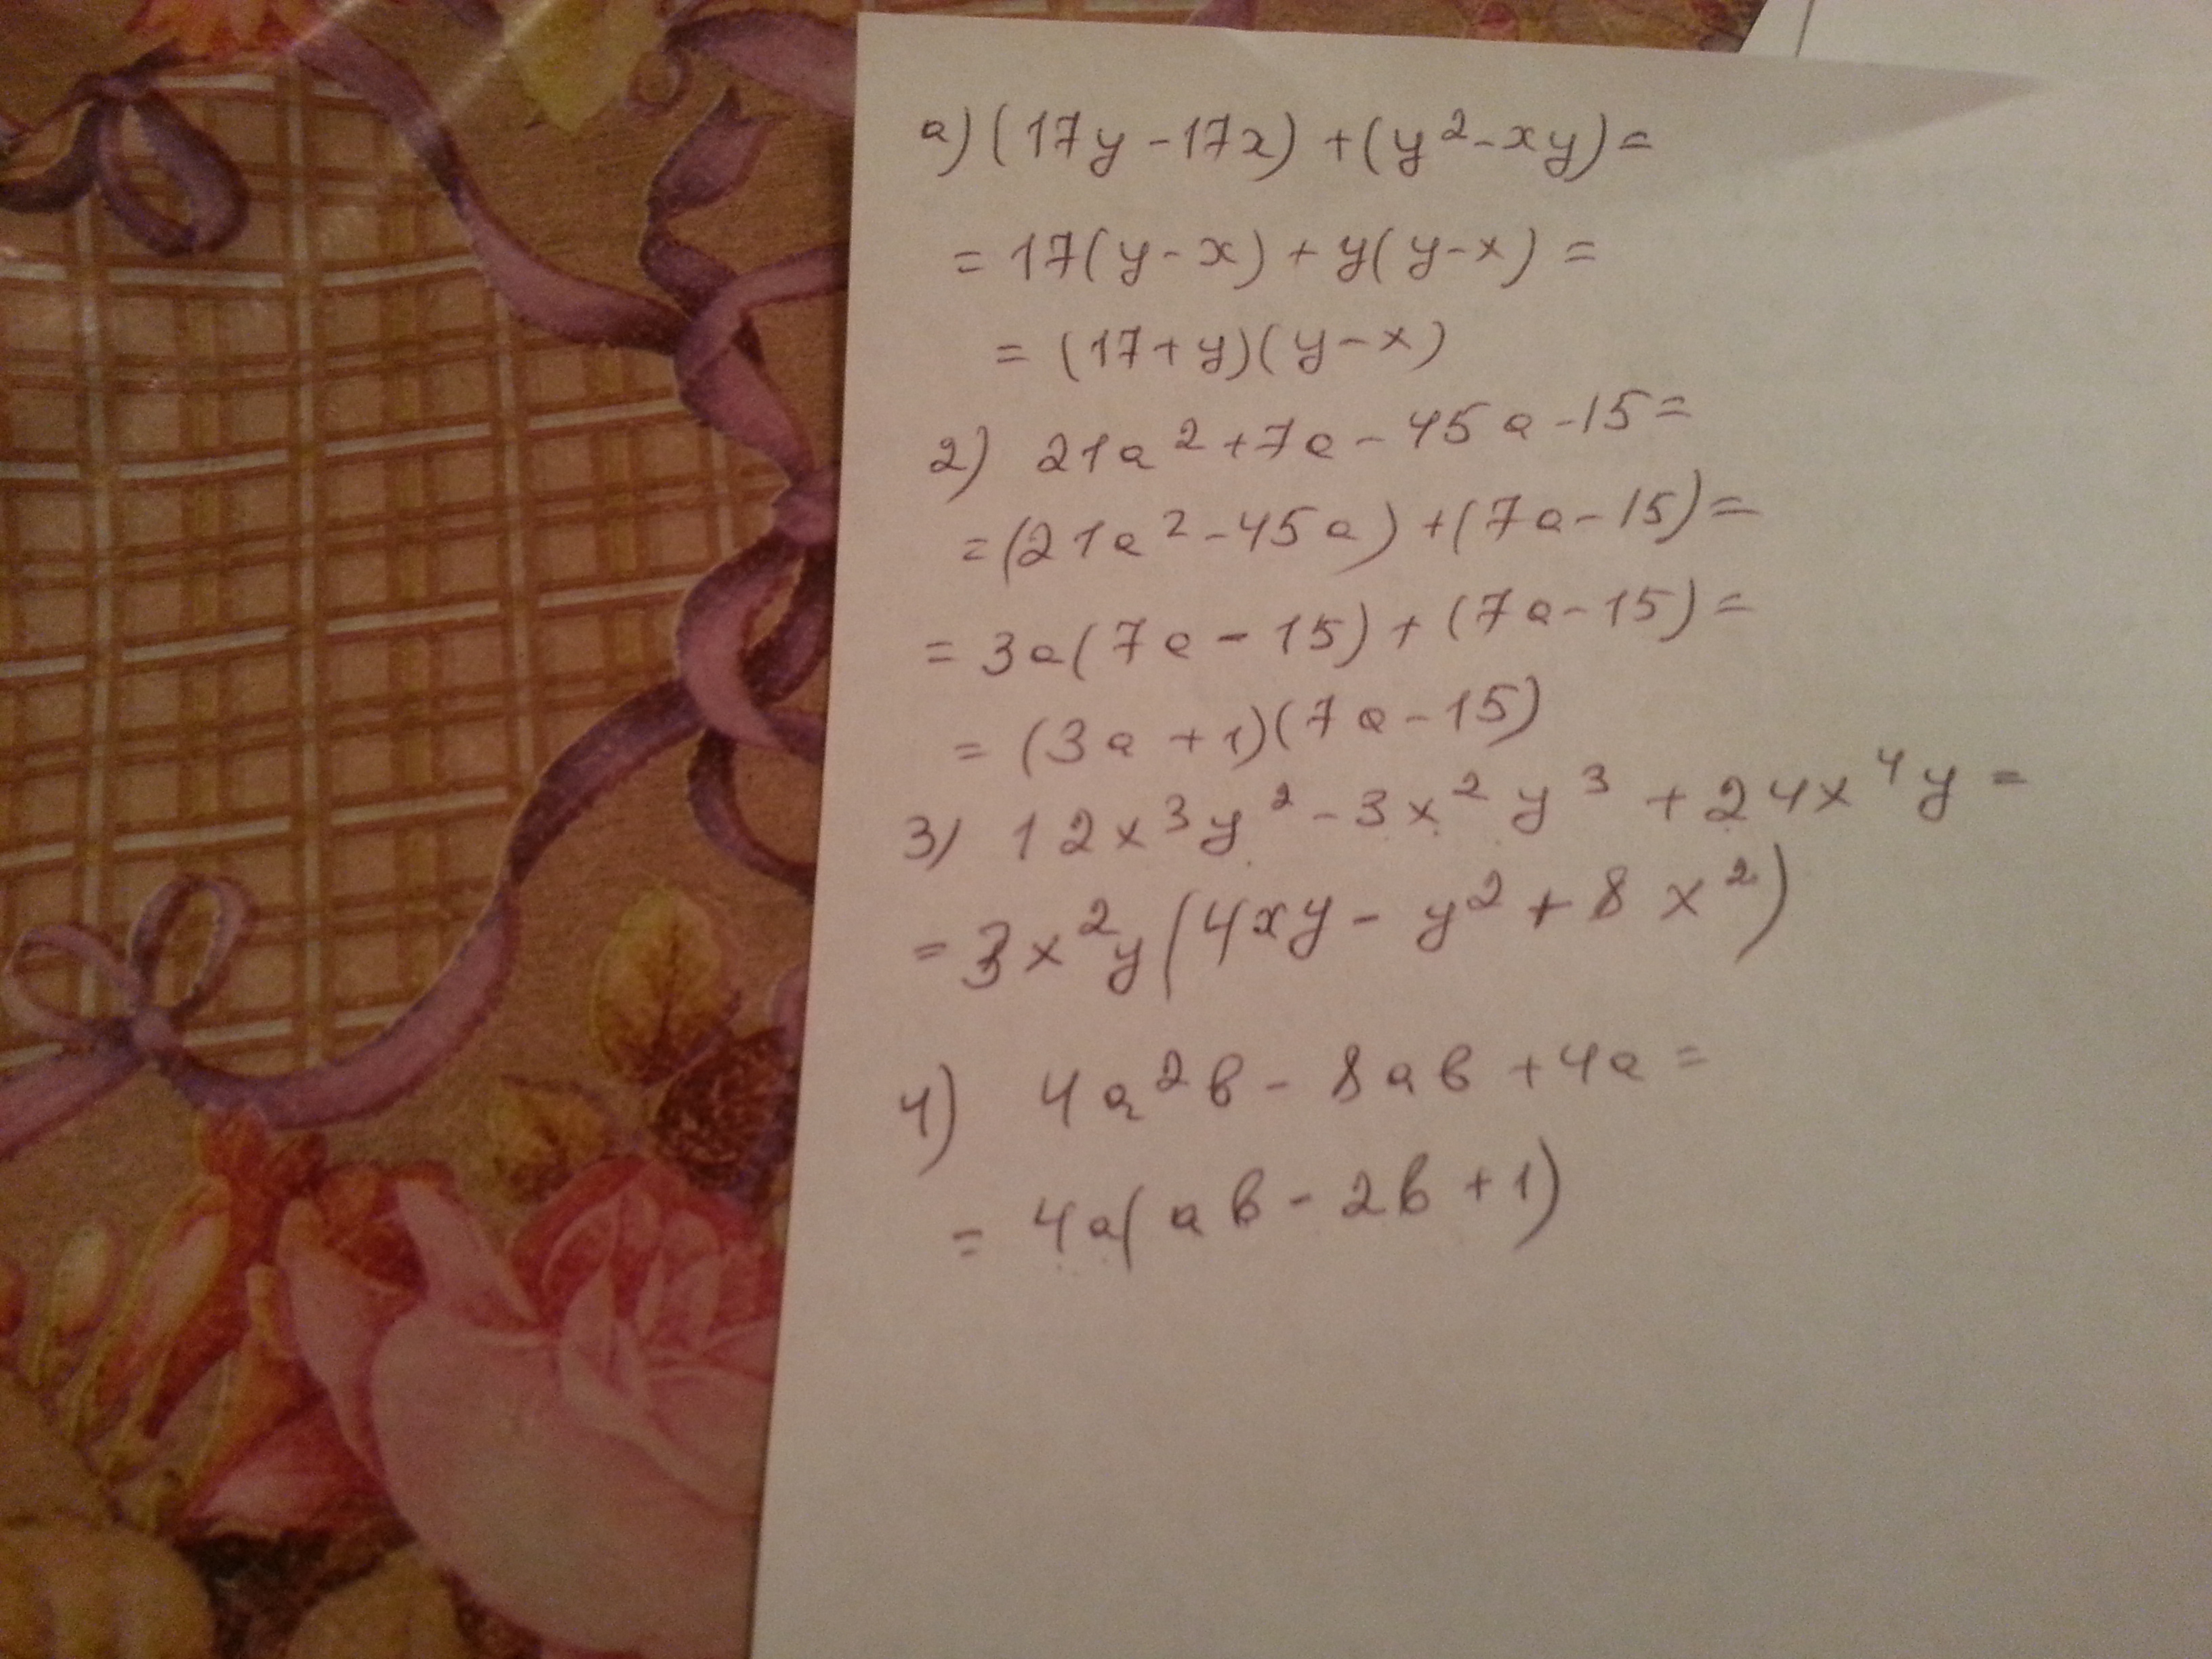 а) (17y - 17x) + (y² - xy) =
= 17(y - x) + y(y - x) =
= (17 + y)(y - x)
2) 21a² + 7a - 45a - 15 =
= (21a² - 45a) + (7a - 15) =
= 3a(7a - 15) + (7a - 15) =
= (3a + 1)(7a - 15)
3) 12x³y² - 3x²y³ + 24x⁴y =
= 3x²y(4xy - y² + 8x²)
4) 4a²b - 8ab + 4a =
= 4a(ab - 2b + 1)